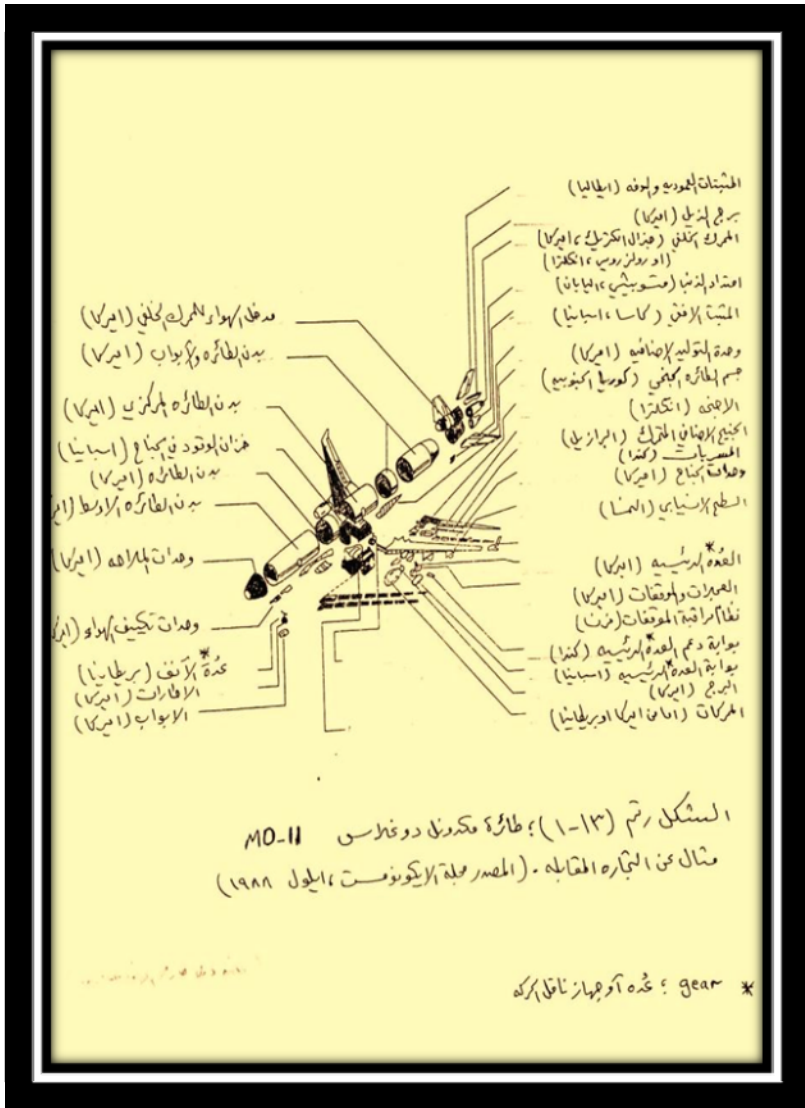 المثبتات العموديه والدفه (ايطاليا)
برج الذيل (اميركا)
المحرك الخلفي (جنرال الكتريك، اميركا)
(او رولز رويس، انكلترا)
امتداد الذنب (متسوبيشي، اليابان)
المثبت الافقي (كاسا، اسبانيا)
وحدة التوليد الاضافيه (اميركا)
جسم الطائره الخلفي (كوريا الجنوبيه)
الاجنحه (انكلترا)
الجنيح الاضافي المتحرك (البرازيل)
المسربات (كندا)
وحدات الجناح (اميركا)
السطح الانسيابي (النمسا)
العُدّه* الرئيسيه (اميركا)
العجلات والموقفات (اميركا)
نظام مراقبة الموقفات (فرنسا)
بوابة دعم العده* الرئيسيه (كندا)
بوابة العده* الرئيسيه (اسبانيا)
البرج (اميركا)
المحركات (اما من اميركا او بريطانيا)
مدخل الهواء للمحرك الخلفي (اميركا)
بدن الطائره والأبواب (اميركا)
بدن الطائره المركزي (اميركا)
خزان الوقود في الجناح (اسبانيا)
بدن الطائره (اميركا)
بدن الطائره الاوسط
وحدات الملاحه (اميركا)
وحدات تكييف الهواء
عُدّة* الأنف (بريطانيا)
الاطارات (اميركا)
الابواب (اميركا)
الشكل رقم (١٣-١)؛ طائرة مكدونل دوغلاس MD-11
مثال عن التجاره المقابله. (المصدر مجلة الايكونومست، ايلول ١٩٨٨)
* gear ؛ عُده أو جهاز ناقل الحركه